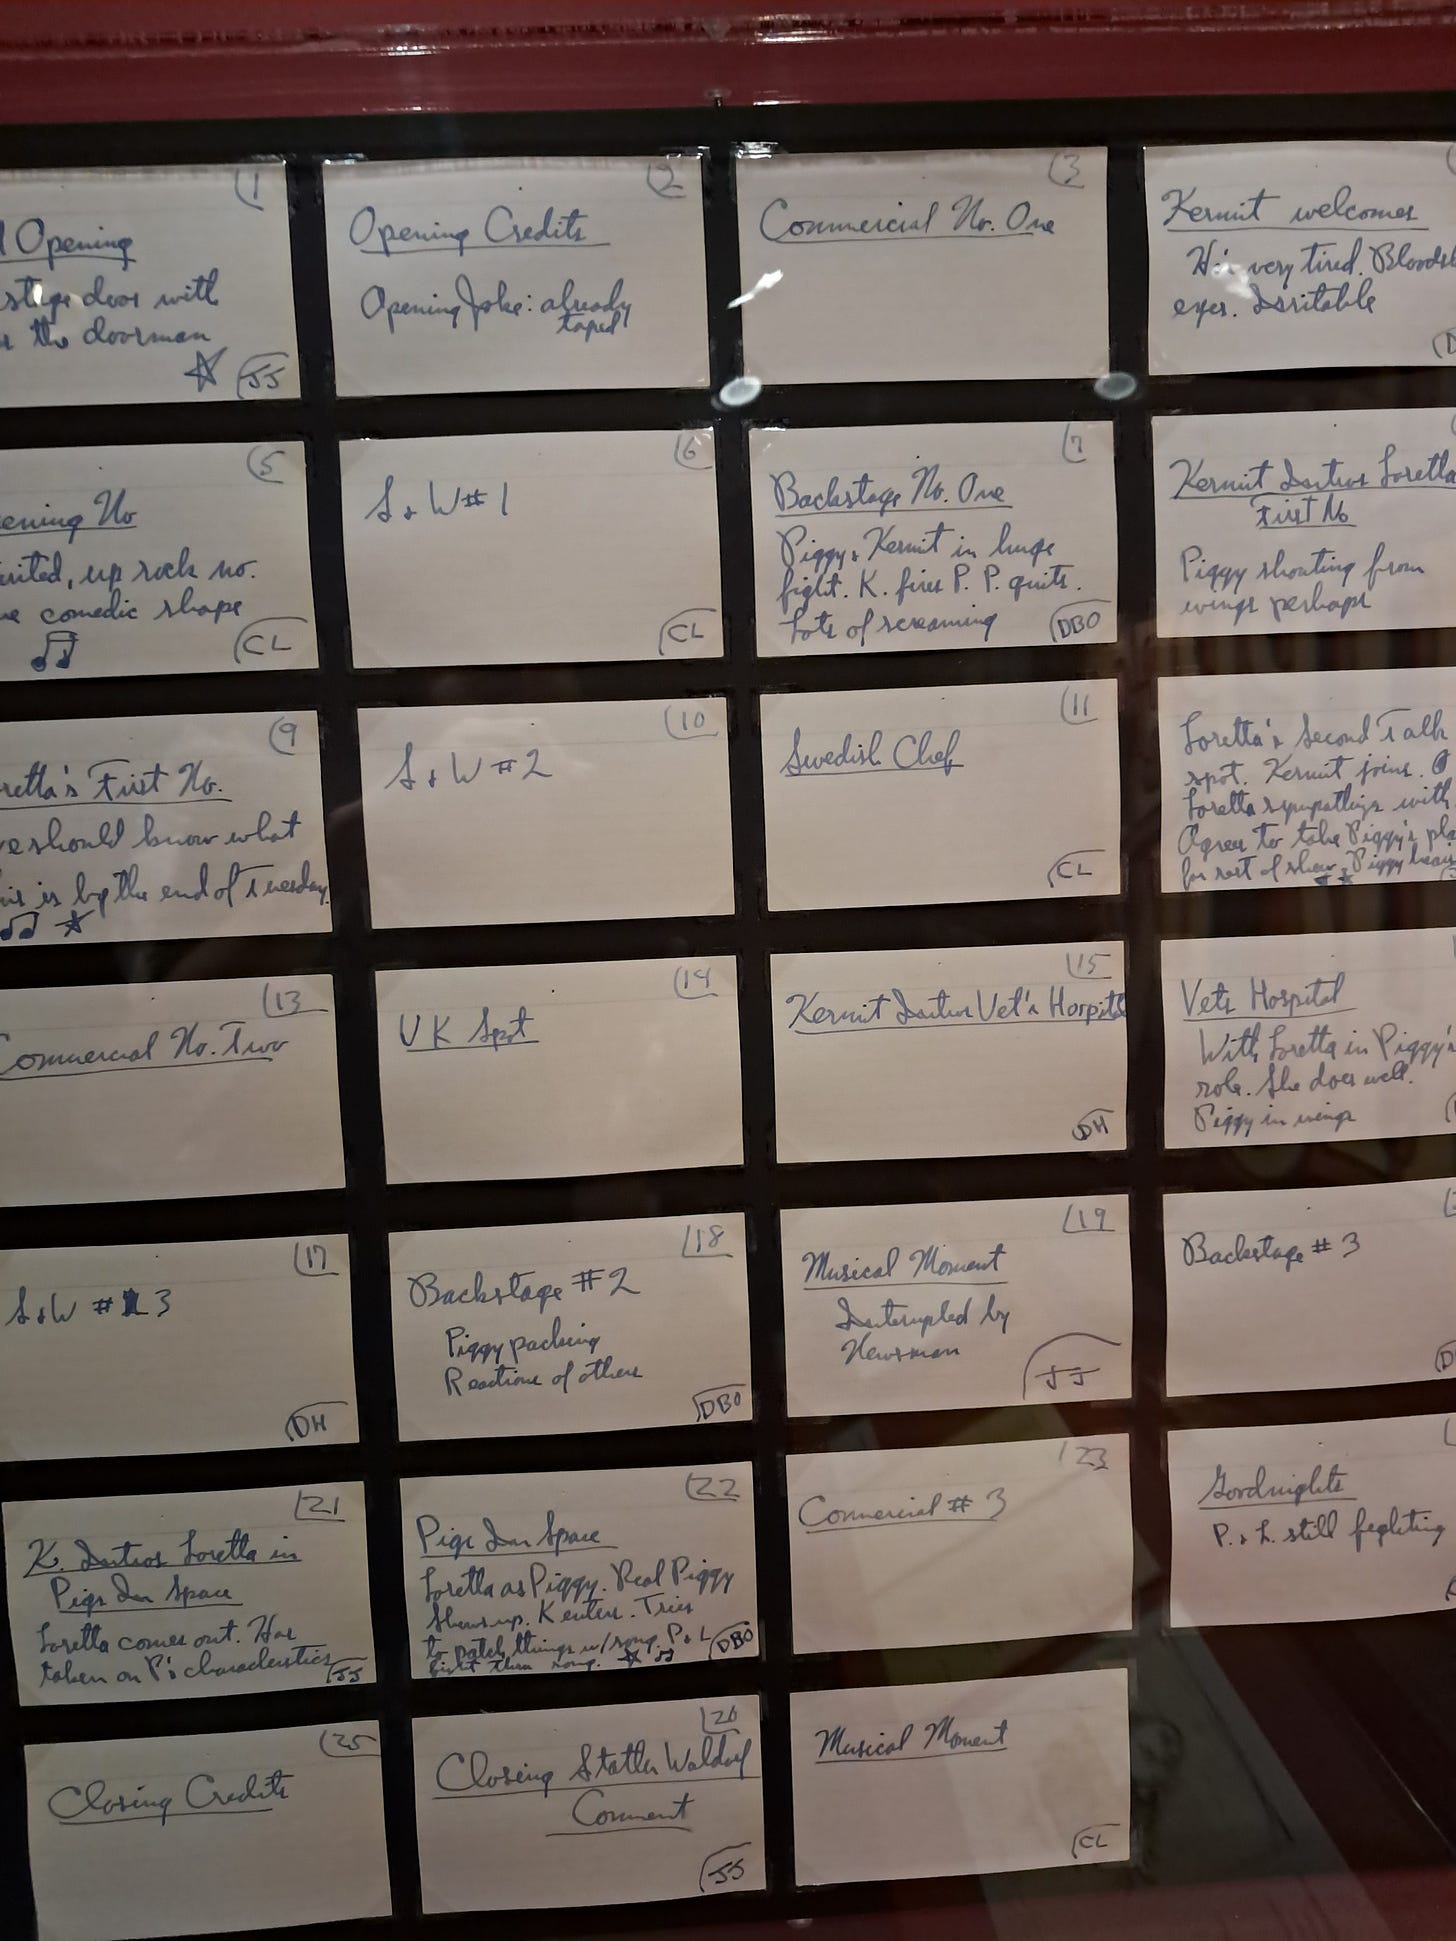 1
Opening
stage door with
the doorman
JJ
2
Opening Credits
Opening Joke: already
taped
3
Commercial No. One
Kermit welcomes
He's very tired. Bloodsh
eyes. Irritable
5
ening No
united, up rock no.
comedic shape
CL
6
S & W # 1
CL
7
Backstage No. One
Piggy & Kermit in huge
fight. K. fires P. P. quits.
Lots of screaming
DBO
Kermit Intros Loretta
First No
Piggy shouting from
wings perhaps
9
retta's First No.
e should know what
his is by the end of Tuesday.
10
S & W # 2
11
Swedish Chef
CL
Loretta's Second Talk
spot. Kermit joins.
Loretta sympathizes with
Agrees to take Piggy's pla
for rest of show. Piggy hears
13
Commercial No. Two
14
UK Spot
15
Kermit Intros Vet's Hospital
DH
Vets Hospital
With Loretta in Piggy's
role. She does well.
Piggy in wings
17
S & W # 3
DH
18
Backstage # 2
Piggy packing
Reactions of others
DBO
19
Musical Moment
Interrupted by
Newsman
JJ
Backstage # 3
21
K. Intros Loretta in
Pigs In Space
Loretta comes out. Has
taken on P's characteristics
JJ
22
Pigs In Space
Loretta as Piggy. Real Piggy
shows up. K enters. Tries
to patch things w/song. P & L
fight thru song.
DBO
23
Commercial # 3
Goodnights
P. & L. still fighting
25
Closing Credits
26
Closing Statler Waldorf
Comment
JJ
Musical Moment
CL